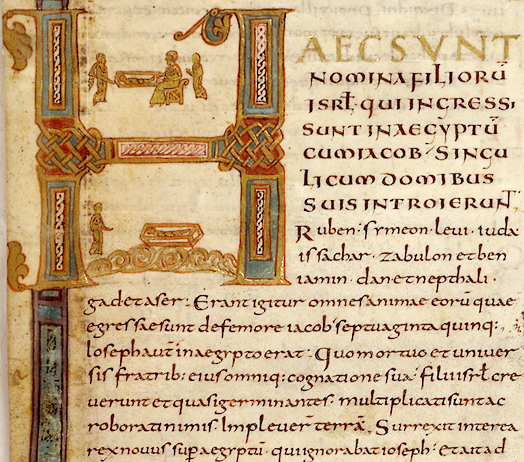 HAEC SVNT
NOMINA FILIORŪ
ISRL̄ QUI INGRESSI
SUNT IN AEGYPTŪ
CUM IACOB · SINGU
LI CUM DOMIBUS
SUIS INTROIERUN̄T
Ruben · symeon · levi · iuda
issachar · zabulon et ben
iamin · dan et nepthali ·
gad et aser : Erant igitur omnes animae eorū quae
egressae sunt de femore iacob septuaginta quinq:
Ioseph aūt in aegypto erat : Quo mortuo et univer
sis fratrib: eius omniq: cognatione sua · filii isrł cre
verunt et quasi germinantes · multiplicati sunt ac
roborati nimis Implever̄ terrā · Surrexit interea
rex novus sup aegyptū · qui ignorabat ioseph : et ait ad